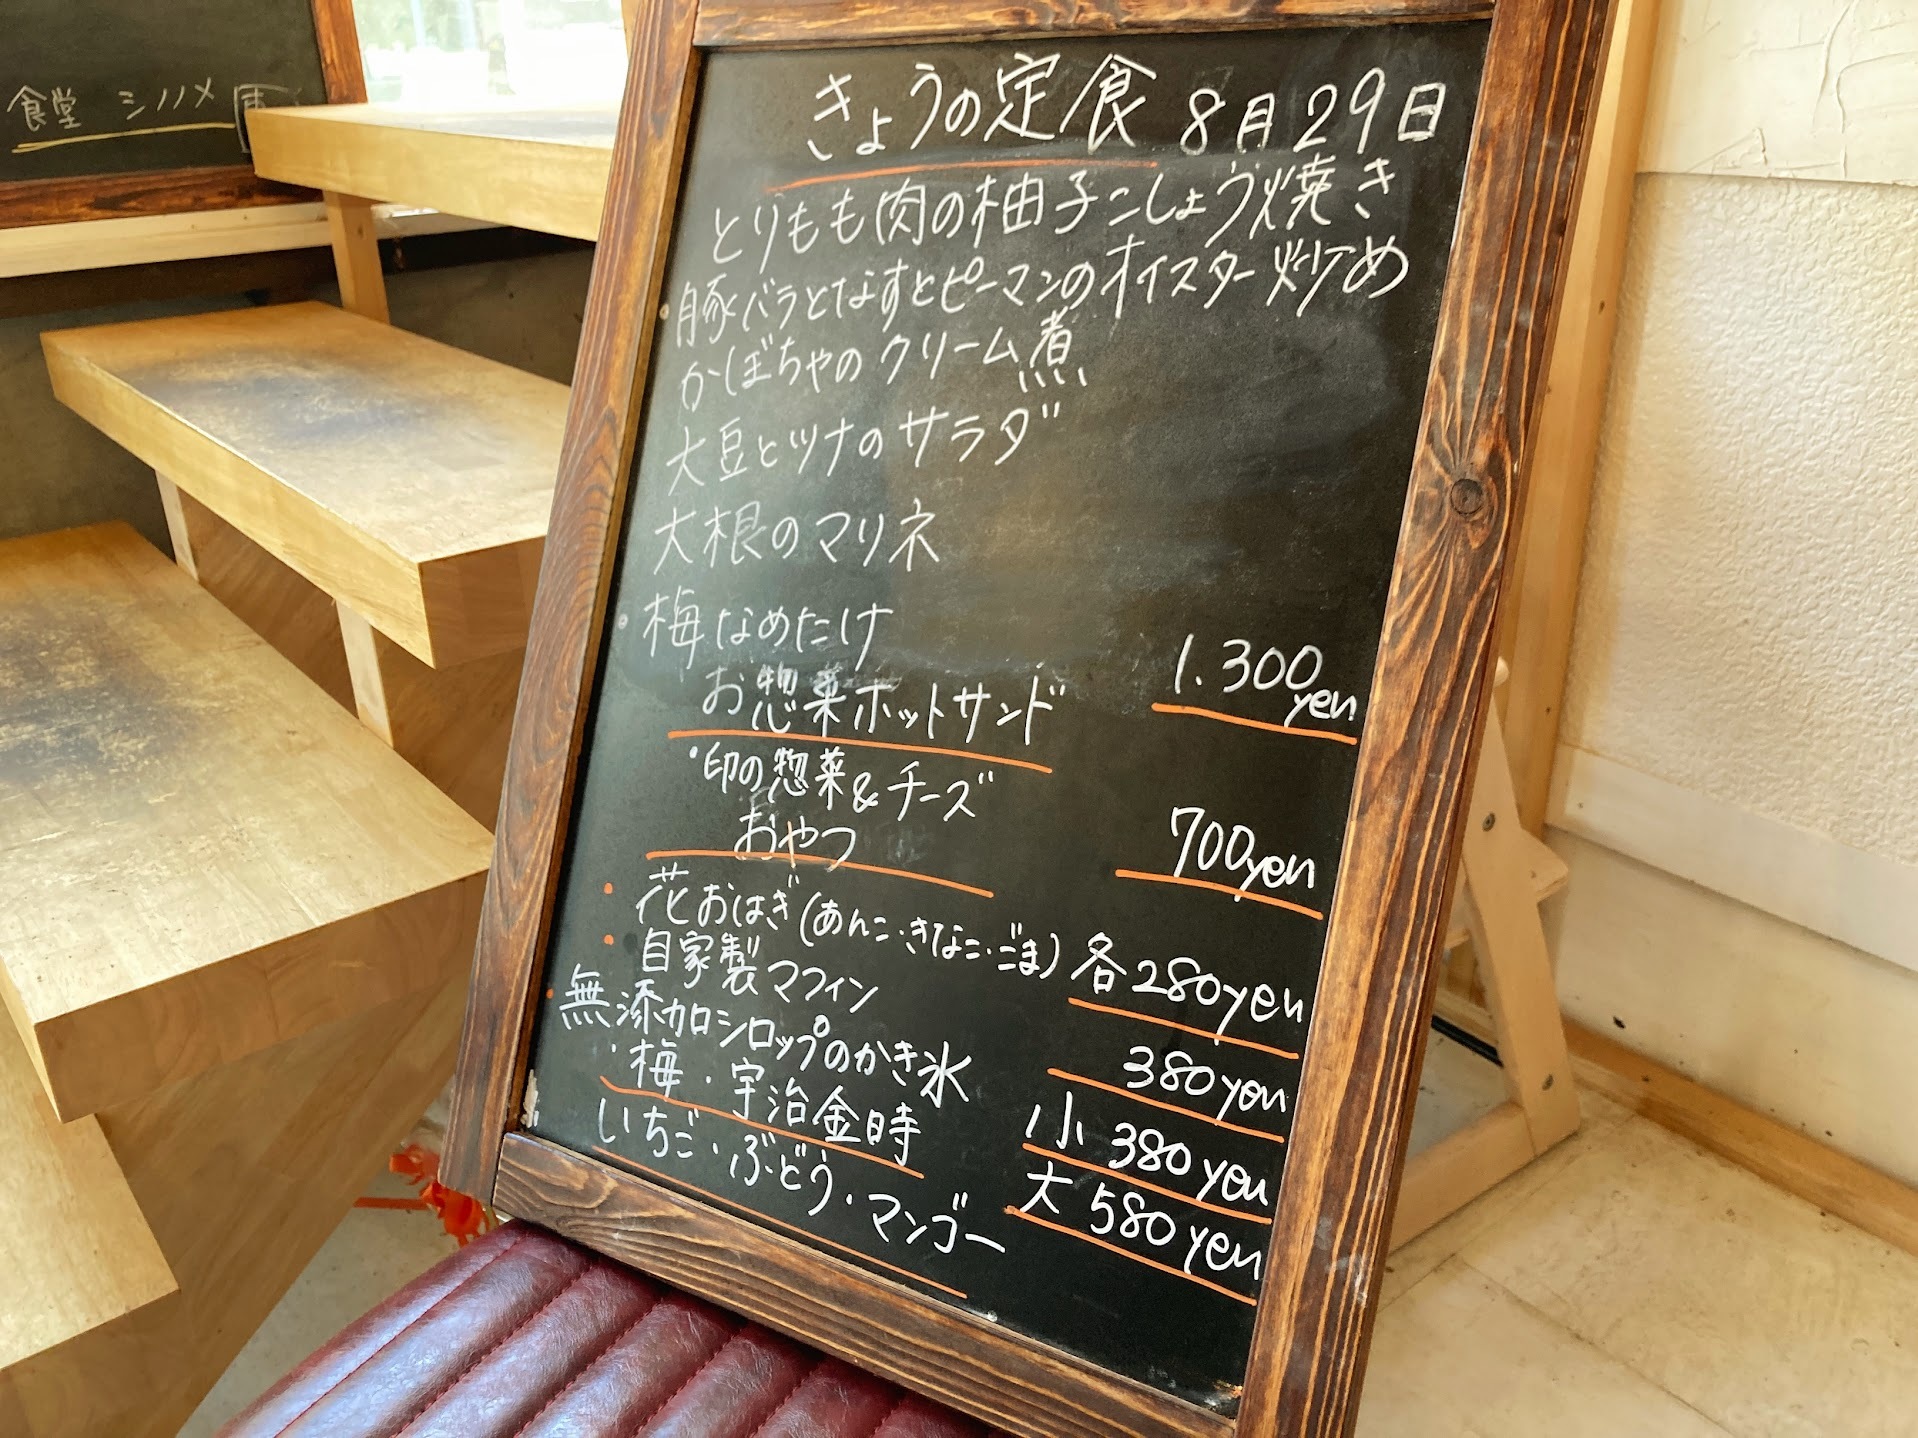 食堂 シノノメ
きょうの定食 8月29日
とりもも肉の柚子こしょう焼き
・豚バラとなすとピーマンのオイスター炒め
かぼちゃのクリーム煮
大豆とツナのサラダ
大根のマリネ
・梅なめたけ
1.300yen
お惣菜ホットサンド
・印の惣菜&チーズ
700yen
おやつ
・花おはぎ(あんこ・きなこ・ごま) 各280yen
・自家製マフィン 380yen
・無添加シロップのかき氷
・梅・宇治金時 小 380yen
いちご・ぶどう・マンゴー 大 580yen